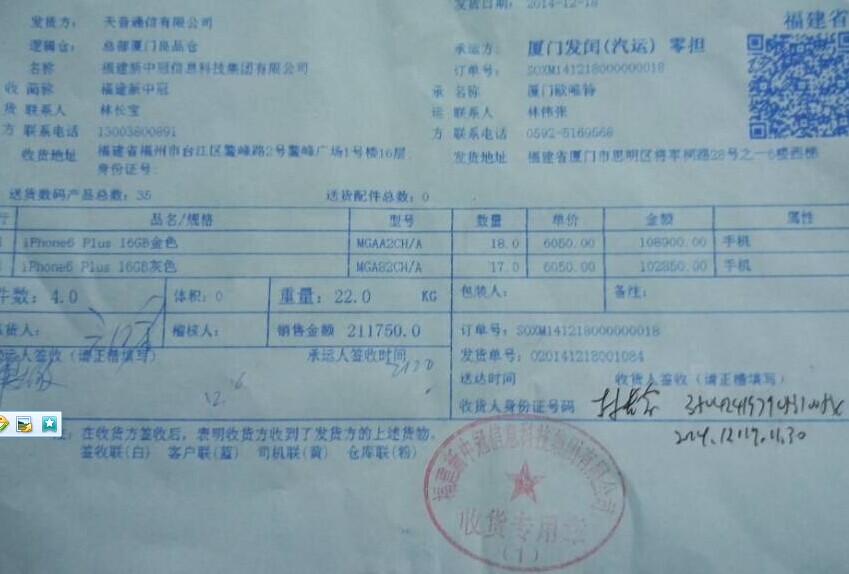 发货日期: 2014-12-18
福建省
发货方: 天音通信有限公司
逻辑仓: 总部厦门良品仓
承运方: 厦门发闰(汽运) 零担
名称 福建新中冠信息科技集团有限公司
订单号: SOXM141218000000018
收 简称 福建新中冠
承 名称 厦门欧唯特
货 联系人 林长宝
运 联系人 林伟张
方 联系电话 13003800891
方 联系电话 0592-5169568
收货地址 福建省福州市台江区鳌峰路2号鳌峰广场1号楼16层
发货地址 福建省厦门市思明区将军祠路28号之一6楼西梯
身份证号:
送货数码产品总数: 35 送货配件总数: 0
行 品名/规格 型号 数量 单价 金额 属性
iPhone6 Plus 16GB金色 MGAA2CH/A 18.0 6050.00 108900.00 手机
iPhone6 Plus 16GB灰色 MGA82CH/A 17.0 6050.00 102850.00 手机
件数: 4.0 体积: 0 重量: 22.0 KG 包装人: 备注:
货人: 稽核人: 销售金额 211750.0
订单号: SOXM141218000000018
运人签收 (请正楷填写) 承运人签收时间
发货单号: 020141218001084
送达时间 收货人签收 (请正楷填写)
12.6
收货人身份证号码
2014.12.19.11.30
注: 在收货方签收后, 表明收货方收到了发货方的上述货物。
签收联(白) 客户联(蓝) 司机联(黄) 仓库联(粉)
福建新中冠信息科技集团有限公司
收货专用章
(1)